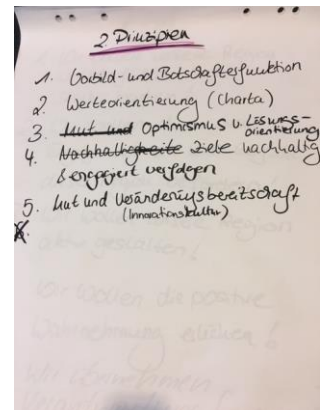 2. Prinzipien
1. Vorbild- und Botschafterfunktion
2. Werteorientierung (Charta)
3. Mut und Optimismus u. Lösungs-
orientierung
4. Nachhaltigkeite Ziele nachhaltig
& engagiert verfolgen
5. Mut und Veränderungsbereitschaft
(Innovationskultur)
6.